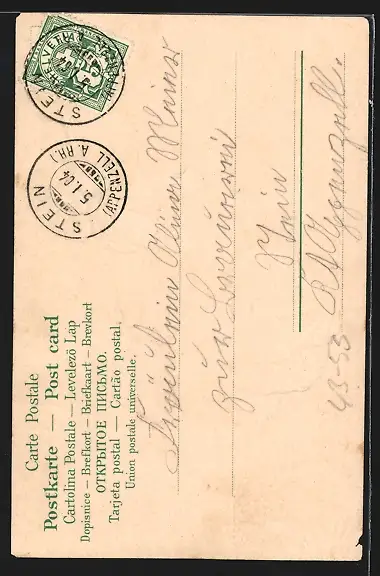 Carte Postale
Postkarte — Post card
Cartolina Postale — Levelező Lap
Dopisnice — Brefkort — Briefkaart — Brevkort
ОТКРЫТОЕ ПИСЬМО.
Tarjeta postal — Cartão postal.
Union postale universelle.
HELVETIA
STEIN
STEIN
5.I.04
(APPENZELL A. RH.)
Fräulein
zur
Stein
Kt Appenzell.
43-53